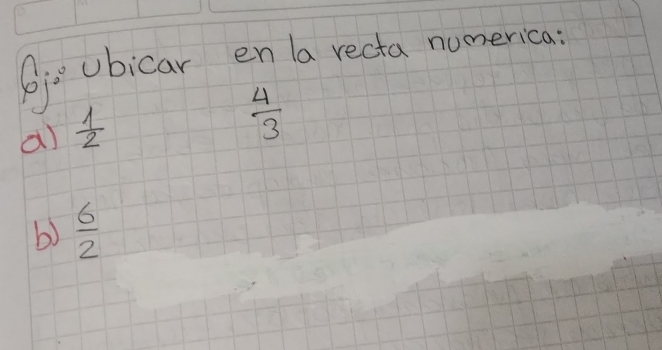 Ej: Ubicar en la recta numerica:
a) 1/2 4/3
b) 6/2